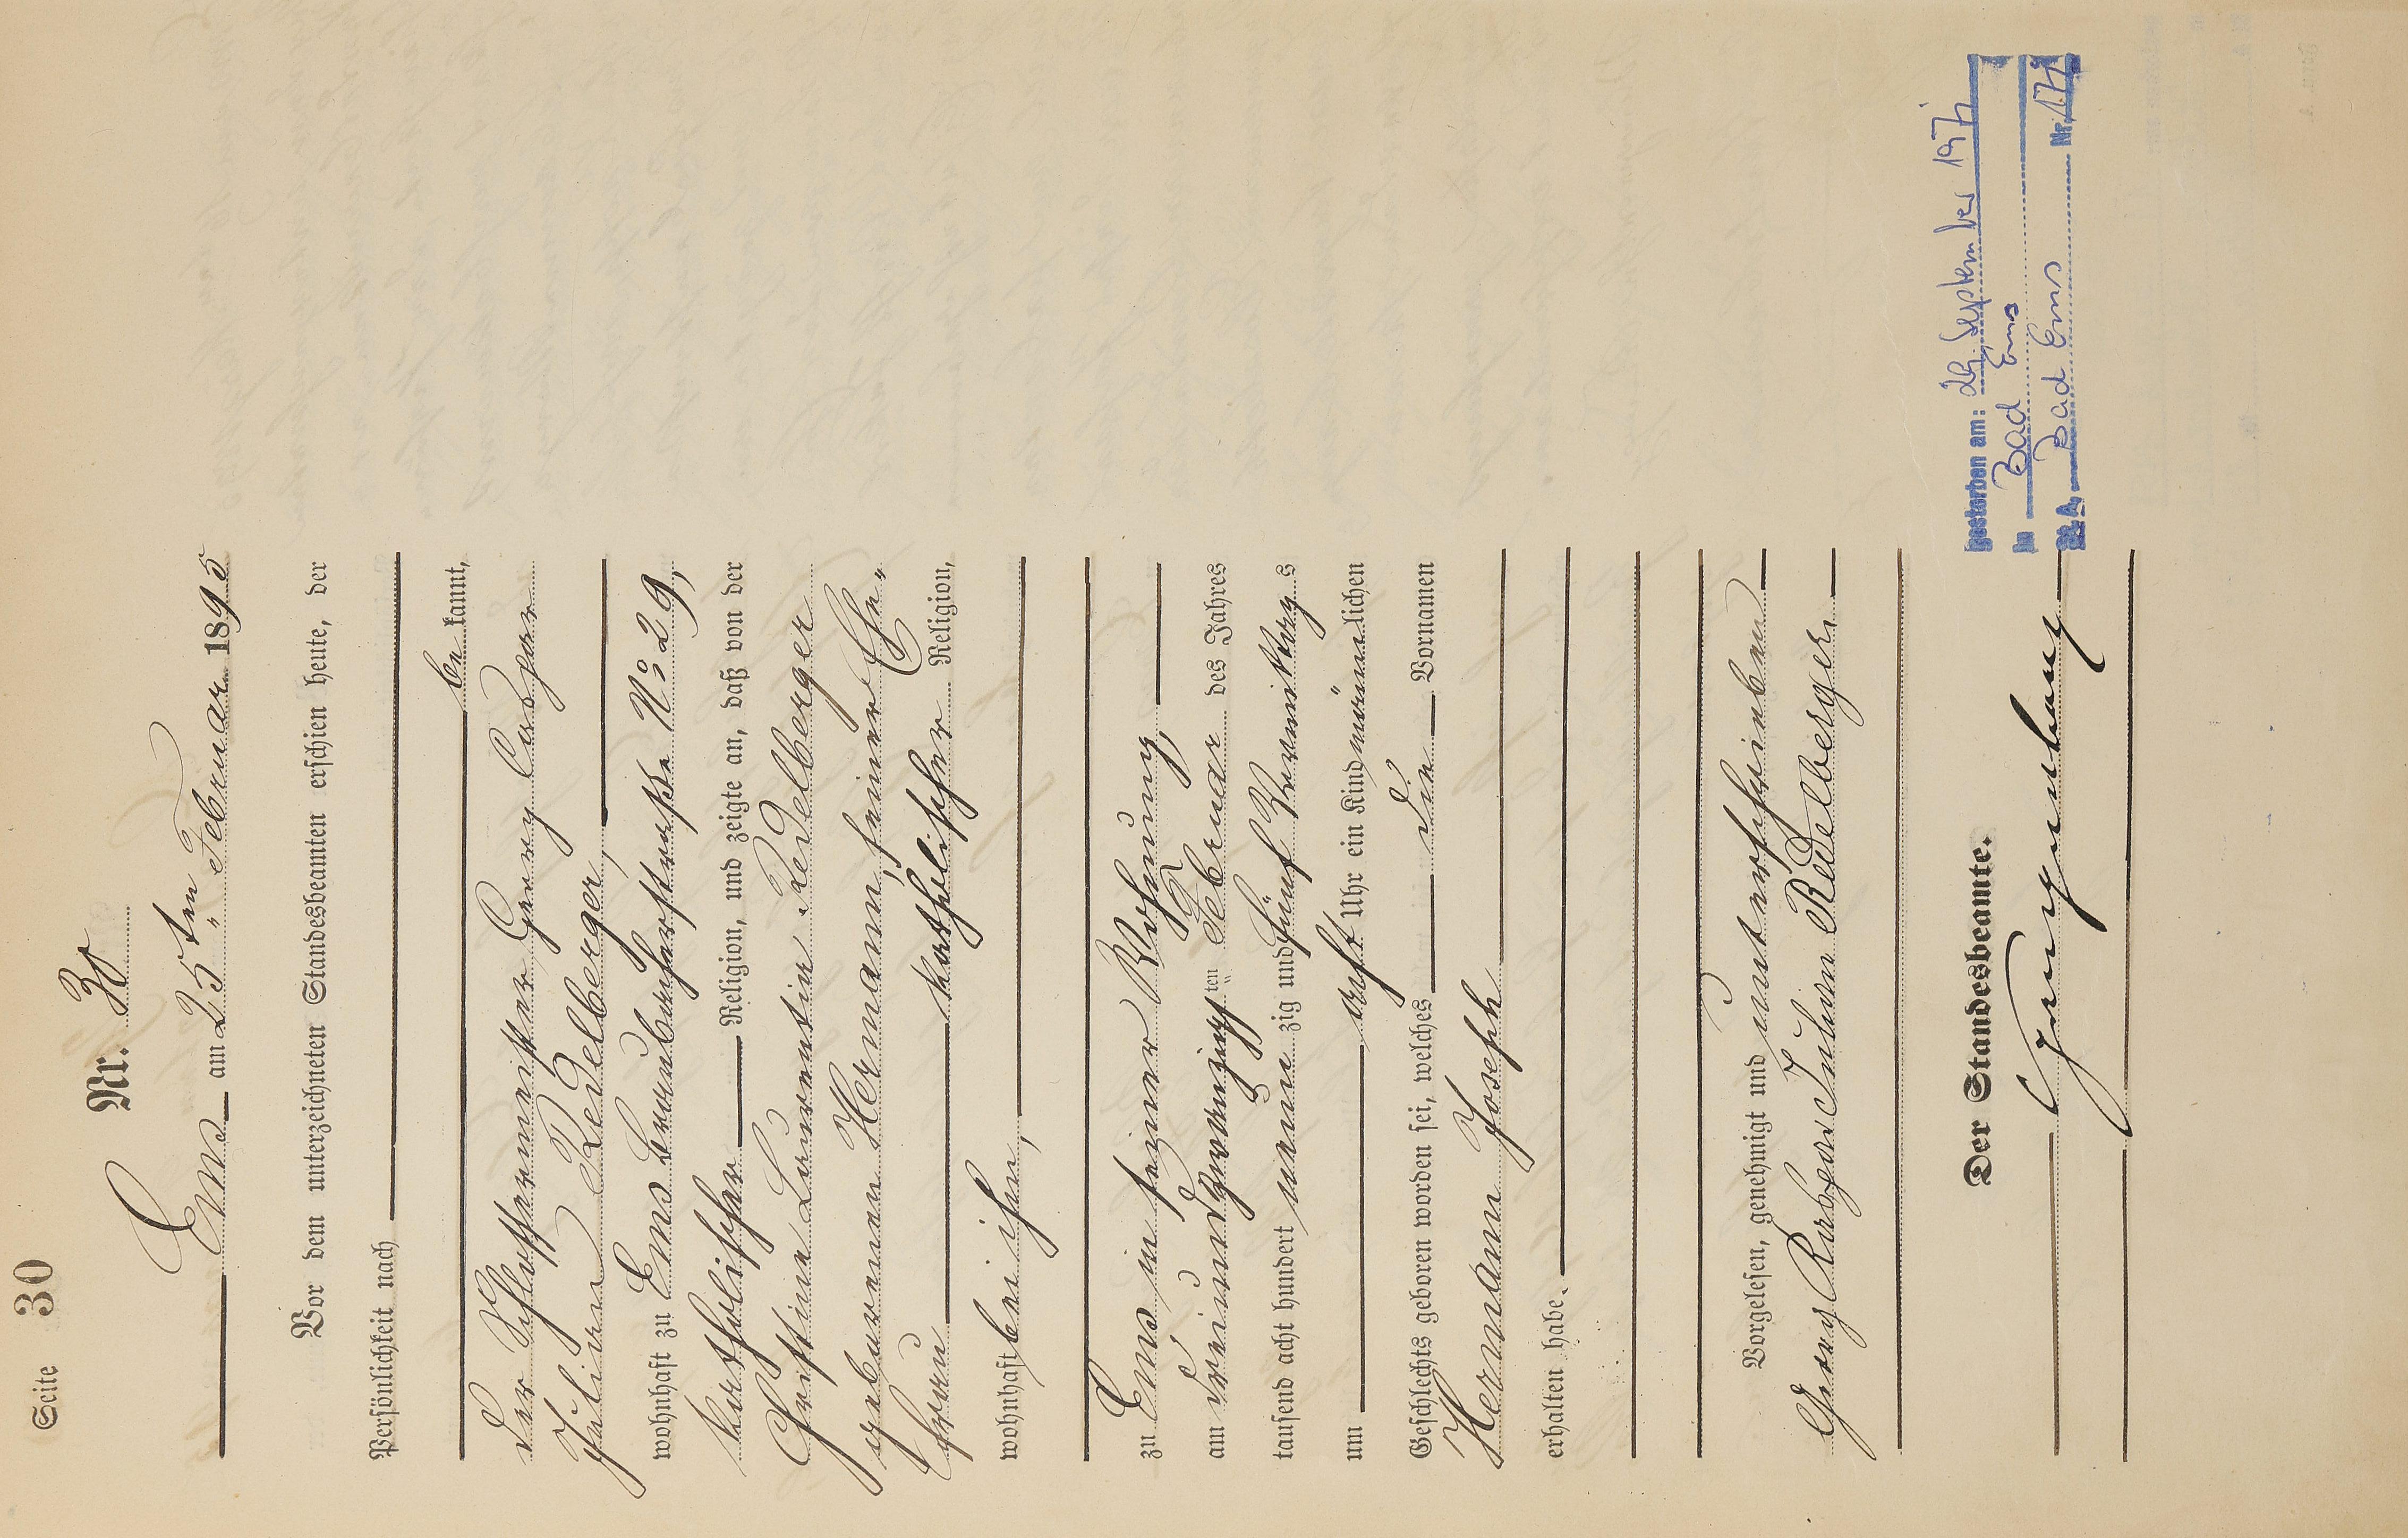 Seite 30
Nr. 30
Ems am 25ten Februar 1895
Vor dem unterzeichneten Standesbeamten erschien heute, der
Persönlichkeit nach
be kannt,
der Schlossermeister Georg Caspar
Julius Redelberger,
wohnhaft zu Ems Braubacherstraße No 29,
katholischer Religion, und zeigte an, daß von der
Christine Laurentia Redelberger
geborenen Hermann, seiner Ehe-
frau katholischer Religion,
wohnhaft bei ihm,
zu Ems in seiner Wohnung,
am dreiundzwanzigsten Februar des Jahres
tausend acht hundert neun zig und fünf Vormittags
um acht Uhr ein Kind männlichen
Geschlechts geboren worden sei, welches die Vornamen
Hermann Joseph
erhalten habe.
Vorgelesen, genehmigt und unterschrieben
Georg Julius Redelberger
Der Standesbeamte.
gestorben am: September
in Bad Ems
St. A. Bad Ems Nr.